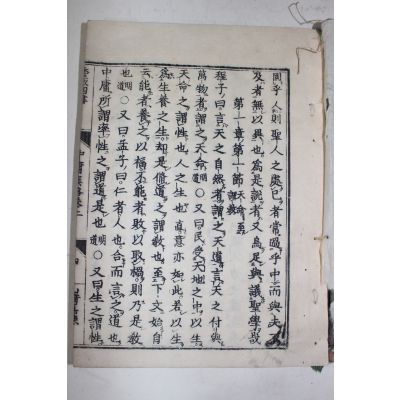 同乎人則聖人之處己者常區乎中而與夫
及者無以異也為是說者又烏足與議聖學哉
第一章第一節 天命至謂教
程子曰言天之自然者謂之天道言天之付與
萬物者謂之天命 明道 ○又曰民受天地之中以生
天命之謂性也人之生也直意亦如此若以生
為生養之生却是脩道之謂教也至下文始自
云能者養之以福不能者敗以取禍則乃是教
也 明道 ○又曰孟子曰仁者人也合而言之道也
中庸所謂率性之謂道是也 明道 ○又曰生之謂性
四